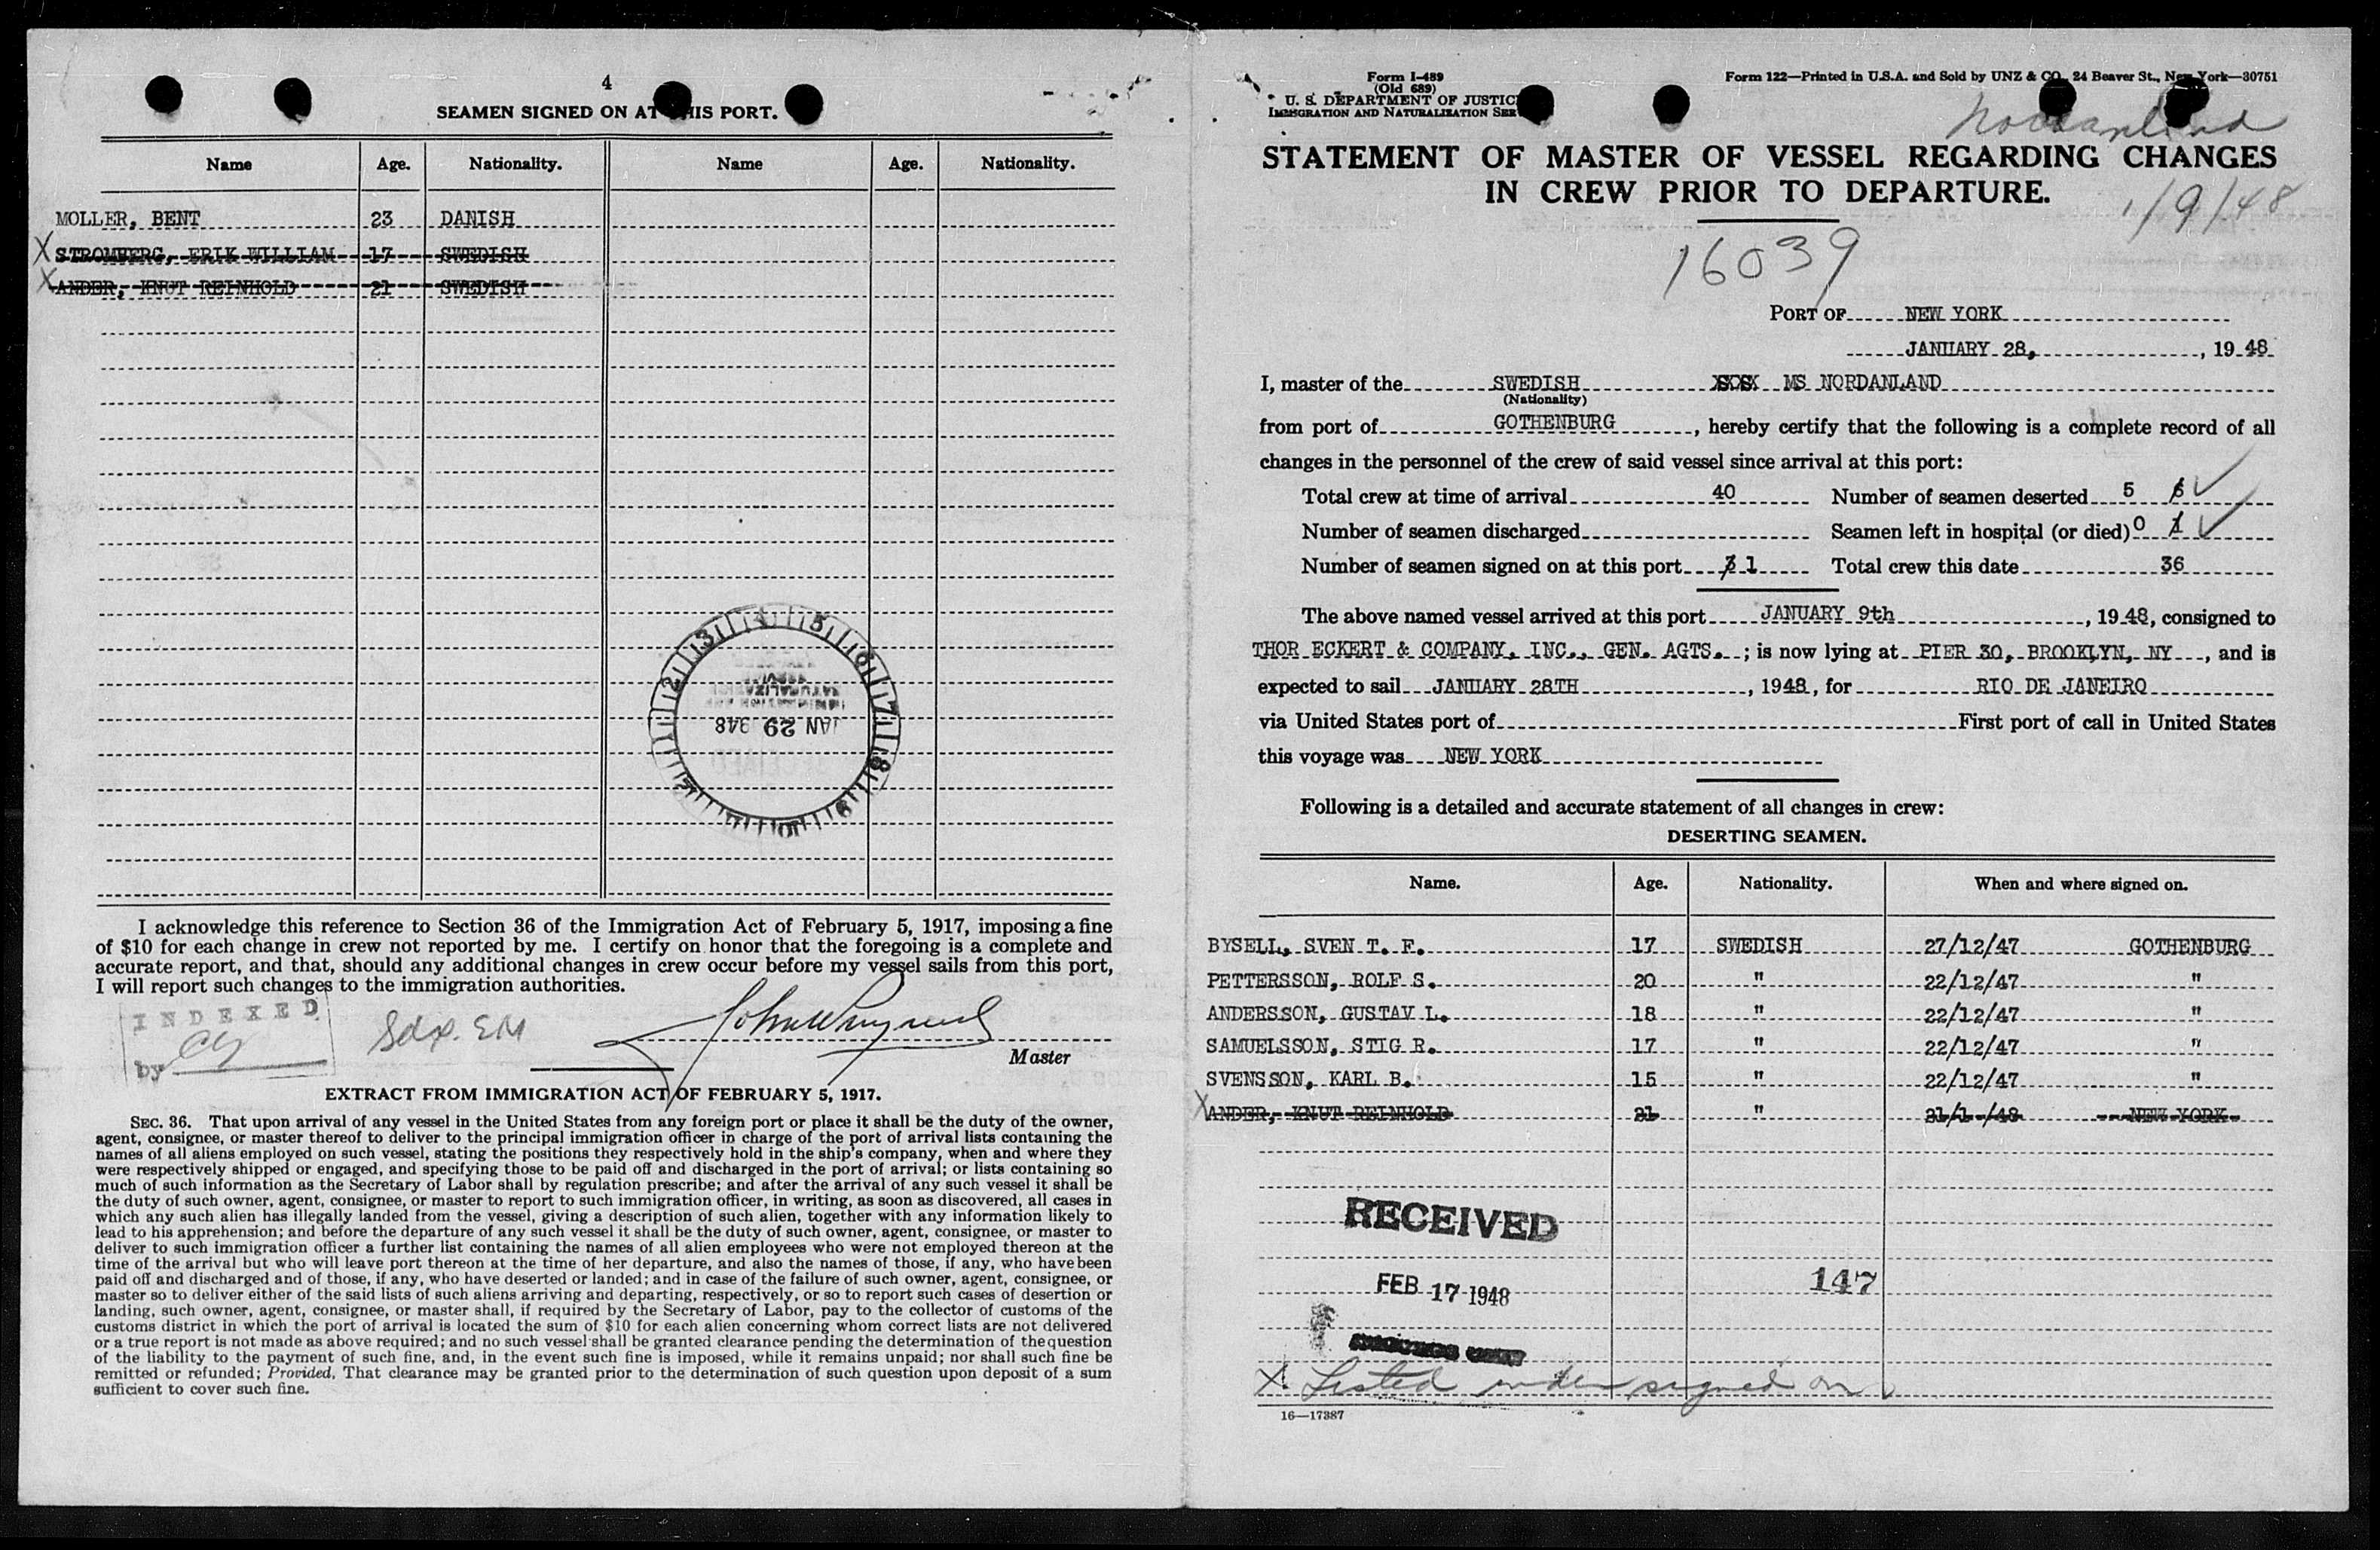 4
SEAMEN SIGNED ON AT THIS PORT.
Name Age. Nationality. Name Age. Nationality.
MOLLER, BENT 23 DANISH
X STROMBERG, ERIK WILLIAM 17 SWEDISH
X ANDER, KNUT REINHOLD 21 SWEDISH
JAN 29 1948
I acknowledge this reference to Section 36 of the Immigration Act of February 5, 1917, imposing a fine
of $10 for each change in crew not reported by me. I certify on honor that the foregoing is a complete and
accurate report, and that, should any additional changes in crew occur before my vessel sails from this port,
I will report such changes to the immigration authorities.
INDEXED
by
Master
EXTRACT FROM IMMIGRATION ACT OF FEBRUARY 5, 1917.
SEC. 36. That upon arrival of any vessel in the United States from any foreign port or place it shall be the duty of the owner,
agent, consignee, or master thereof to deliver to the principal immigration officer in charge of the port of arrival lists containing the
names of all aliens employed on such vessel, stating the positions they respectively hold in the ship's company, when and where they
were respectively shipped or engaged, and specifying those to be paid off and discharged in the port of arrival; or lists containing so
much of such information as the Secretary of Labor shall by regulation prescribe; and after the arrival of any such vessel it shall be
the duty of such owner, agent, consignee, or master to report to such immigration officer, in writing, as soon as discovered, all cases in
which any such alien has illegally landed from the vessel, giving a description of such alien, together with any information likely to
lead to his apprehension; and before the departure of any such vessel it shall be the duty of such owner, agent, consignee, or master to
deliver to such immigration officer a further list containing the names of all alien employees who were not employed thereon at the
time of the arrival but who will leave port thereon at the time of her departure, and also the names of those, if any, who have been
paid off and discharged and of those, if any, who have deserted or landed; and in case of the failure of such owner, agent, consignee, or
master so to deliver either of the said lists of such aliens arriving and departing, respectively, or so to report such cases of desertion or
landing, such owner, agent, consignee, or master shall, if required by the Secretary of Labor, pay to the collector of customs of the
customs district in which the port of arrival is located the sum of $10 for each alien concerning whom correct lists are not delivered
or a true report is not made as above required; and no such vessel shall be granted clearance pending the determination of the question
of the liability to the payment of such fine, and, in the event such fine is imposed, while it remains unpaid; nor shall such fine be
remitted or refunded; Provided, That clearance may be granted prior to the determination of such question upon deposit of a sum
sufficient to cover such fine.
Form I-489
(Old 689)
U. S. DEPARTMENT OF JUSTICE
IMMIGRATION AND NATURALIZATION SER
Form 122—Printed in U.S.A. and Sold by UNZ & CO., 24 Beaver St., New York—30751
Nordanland
STATEMENT OF MASTER OF VESSEL REGARDING CHANGES
IN CREW PRIOR TO DEPARTURE.
1/9/48
16039
PORT OF NEW YORK
JANUARY 28, , 19 48
I, master of the SWEDISH MS NORDANLAND
(Nationality)
from port of GOTHENBURG , hereby certify that the following is a complete record of all
changes in the personnel of the crew of said vessel since arrival at this port:
Total crew at time of arrival 40 Number of seamen deserted 5 6
Number of seamen discharged Seamen left in hospital (or died) 0 1
Number of seamen signed on at this port 3 1 Total crew this date 36
The above named vessel arrived at this port JANUARY 9th , 19 48, consigned to
THOR ECKERT & COMPANY, INC., GEN. AGTS. ; is now lying at PIER 30, BROOKLYN, NY , and is
expected to sail JANUARY 28TH , 1948, for RIO DE JANEIRO
via United States port of First port of call in United States
this voyage was NEW YORK
Following is a detailed and accurate statement of all changes in crew:
DESERTING SEAMEN.
Name. Age. Nationality. When and where signed on.
BYSELL, SVEN T. F. 17 SWEDISH 27/12/47 GOTHENBURG
PETTERSSON, ROLF S. 20 " 22/12/47 "
ANDERSSON, GUSTAV L. 18 " 22/12/47 "
SAMUELSSON, STIG R. 17 " 22/12/47 "
SVENSSON, KARL B. 15 " 22/12/47 "
X ANDER, KNUT REINHOLD 21 " 21/1-/48 NEW YORK
RECEIVED
FEB 17 1948
147
X Listed under signed on
16—17387